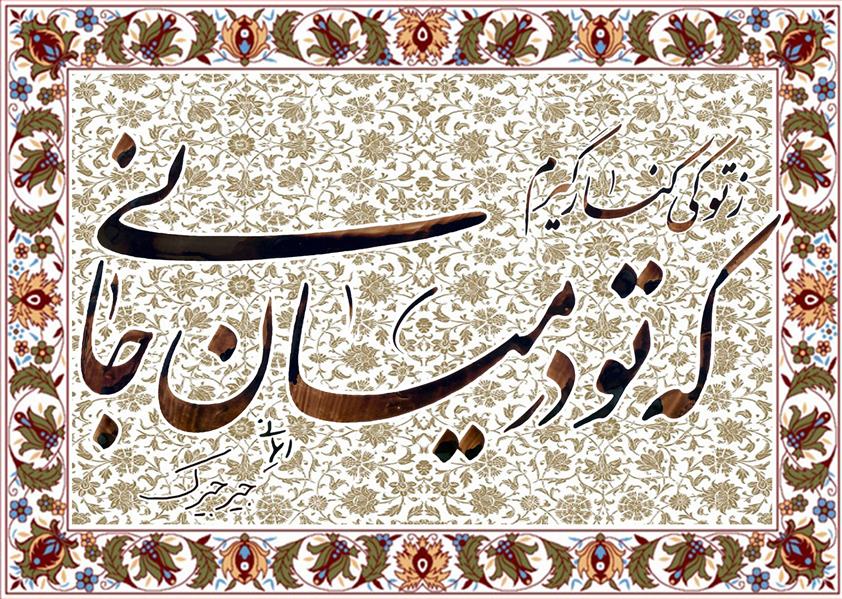 ز تو کی کنار گیرم
که تو در میان جانی
جیرجیرک